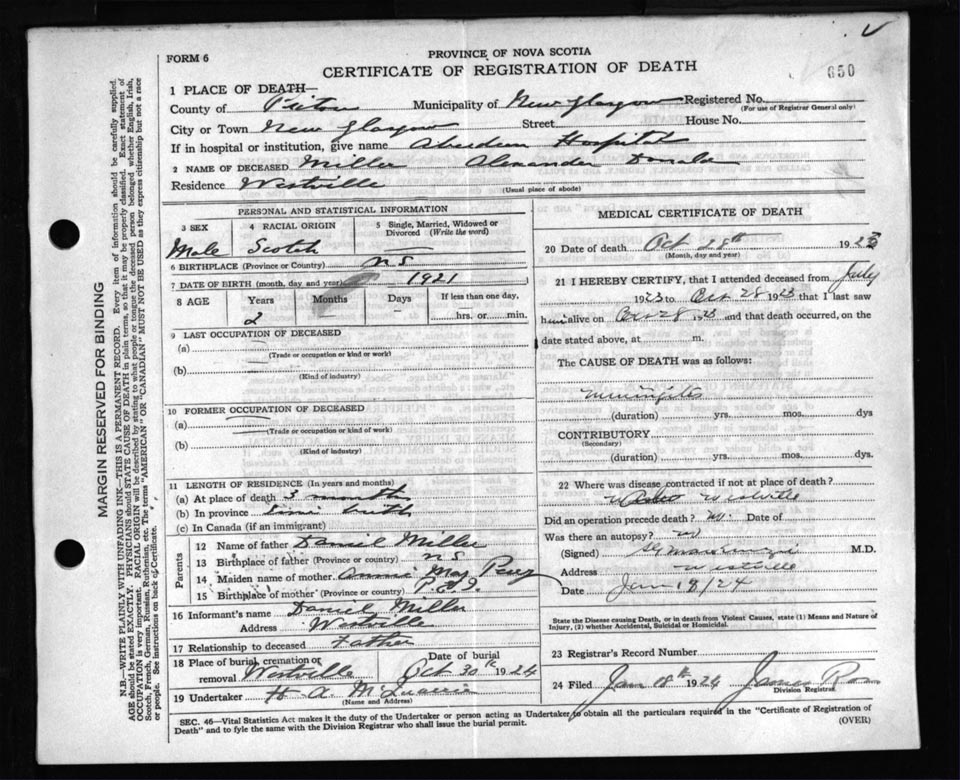 FORM 6
PROVINCE OF NOVA SCOTIA
CERTIFICATE OF REGISTRATION OF DEATH
650
1 PLACE OF DEATH—
County of Pictou Municipality of New Glasgow Registered No.
(For use of Registrar General only)
City or Town New Glasgow Street House No.
If in hospital or institution, give name Aberdeen Hospital
2 NAME OF DECEASED Miller Alexander Donald
Residence Westville
(Usual place of abode)
PERSONAL AND STATISTICAL INFORMATION
3 SEX 4 RACIAL ORIGIN 5 Single, Married, Widowed or Divorced (Write the word)
Male Scotch —
6 BIRTHPLACE (Province or Country) N S
7 DATE OF BIRTH (month, day and year) 1921
8 AGE Years Months Days If less than one day,
2 — hrs. or min.
9 LAST OCCUPATION OF DECEASED
(a)
(Trade or occupation or kind or work)
(b)
(Kind of industry)
10 FORMER OCCUPATION OF DECEASED
(a)
(Trade or occupation or kind of work)
(b)
(Kind of industry)
11 LENGTH OF RESIDENCE (In years and months)
(a) At place of death 3 months
(b) In province Since birth
(c) In Canada (if an immigrant)
Parents
12 Name of father Daniel Miller
13 Birthplace of father (Province or country) N S
14 Maiden name of mother Annie May
15 Birthplace of mother (Province or country) P.E.I.
16 Informant's name Daniel Miller
Address Westville
17 Relationship to deceased Father
18 Place of burial, cremation or removal Westville Date of burial Oct 30th 1924
19 Undertaker H A McQuarrie
(Name and Address)
MEDICAL CERTIFICATE OF DEATH
20 Date of death Oct 28th 1923
(Month, day and year)
21 I HEREBY CERTIFY, that I attended deceased from July
1923 to Oct 28 1923 that I last saw
him alive on Oct 28 1923 and that death occurred, on
date stated above, at m.
The CAUSE OF DEATH was as follows:
Meningitis
(duration) yrs. mos. dys
CONTRIBUTORY
(Secondary)
(duration) yrs. mos. dys.
22 Where was disease contracted if not at place of death?
Westville
Did an operation precede death? no Date of
Was there an autopsy? no
(Signed) M.D.
Address Westville
Date Jan 18/24
State the Disease causing Death, or in death from Violent Causes, state (1) Means and Nature of Injury, (2) whether Accidental, Suicidal or Homicidal.
23 Registrar's Record Number
24 Filed Jan 18th 1924 James
Division Registrar
SEC. 46—Vital Statistics Act makes it the duty of the Undertaker or person acting as Undertaker to obtain all the particulars required in the "Certificate of Registration of
Death" and to fyle the same with the Division Registrar who shall issue the burial permit.
(OVER)
MARGIN RESERVED FOR BINDING
N.B.—WRITE PLAINLY WITH UNFADING INK—THIS IS A PERMANENT RECORD. Every item of information should be carefully supplied.
AGE should be stated EXACTLY. PHYSICIANS should STATE CAUSE OF DEATH in plain terms, so that it may be properly classified. Exact statement of
OCCUPATION is very important. RACIAL ORIGIN will be described by stating to what people or tongue the deceased person belonged whether English, Irish,
Scotch, French, German, Russian, Ruthenian, etc. The terms "AMERICAN" OR "CANADIAN" MUST NOT BE USED as they express citizenship but not a race
or people. See instructions on back of Certificate.